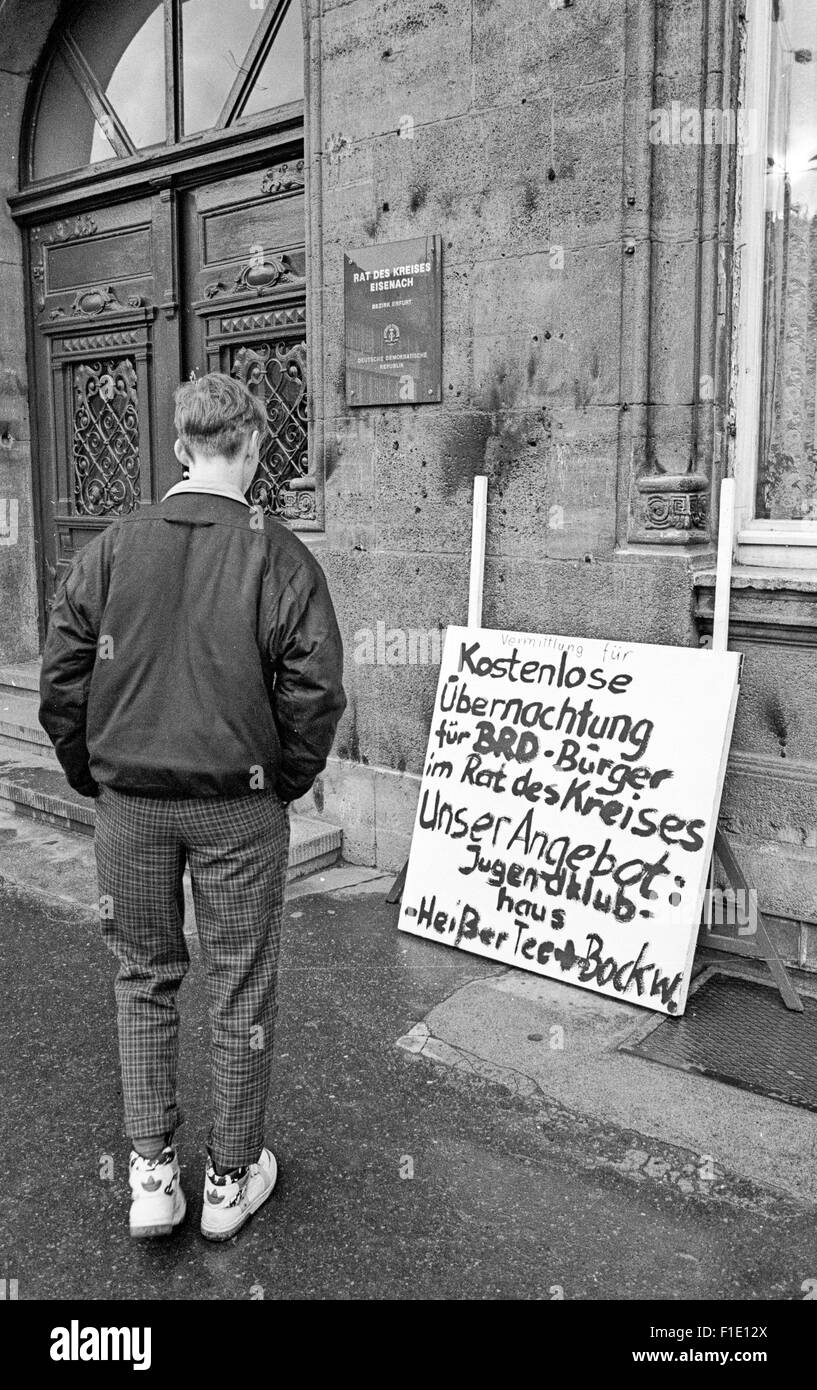 RAT DES KREISES
EISENACH
BEZIRK ERFURT
DEUTSCHE DEMOKRATISCHE
REPUBLIK
Vermittlung für
Kostenlose
Übernachtung
für BRD-Bürger
im Rat des Kreises
Unser Angebot:
Jugendklub-
haus
-Heißer Tee + Bockw.
alamy stock photo
F1E12X
www.alamy.com